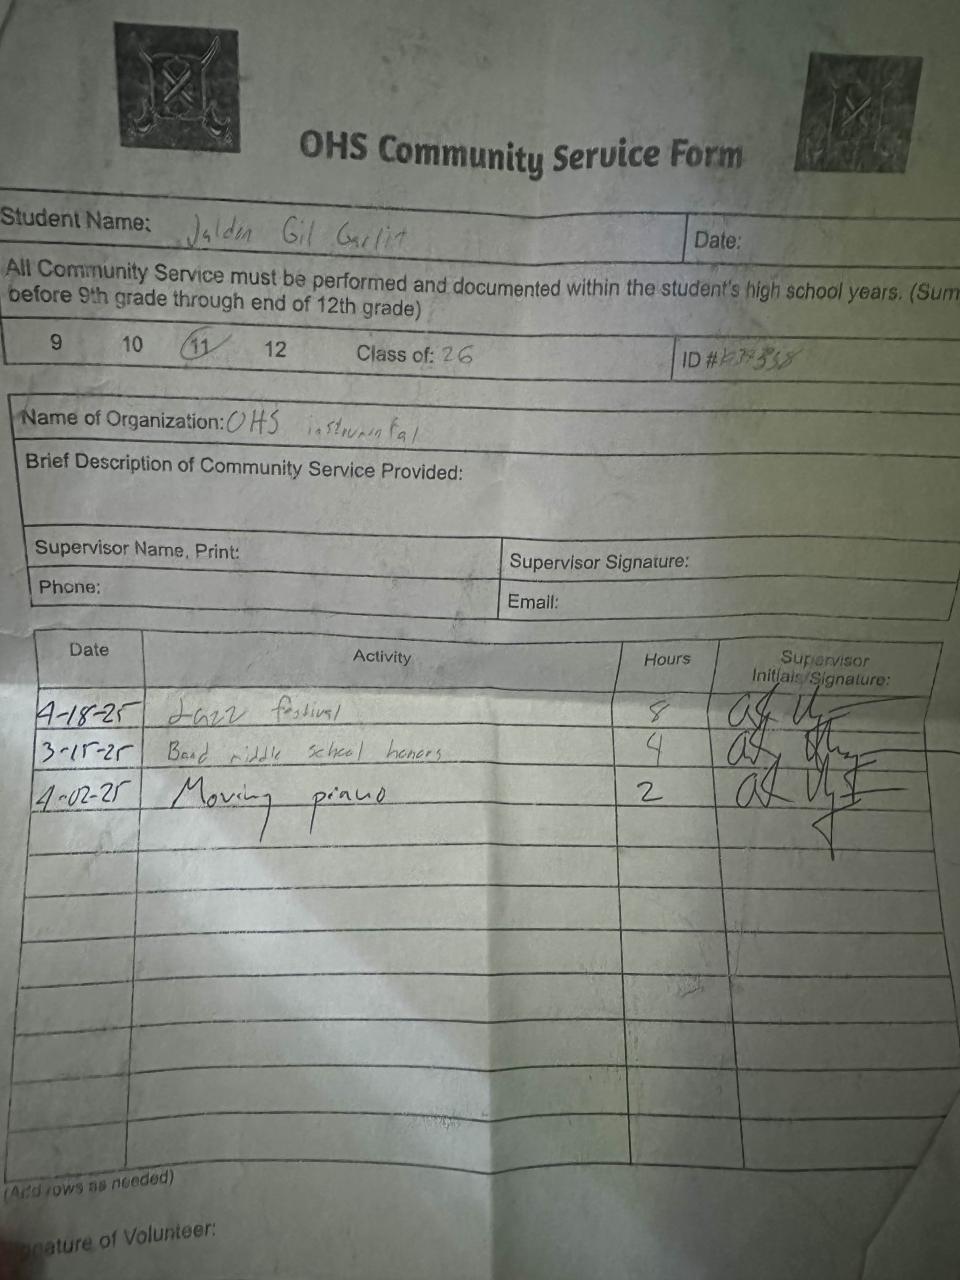 OHS Community Service Form
Student Name: Jaldon Gil Garlit
Date:
All Community Service must be performed and documented within the student's high school years. (Sum
before 9th grade through end of 12th grade)
9 10 11 12 Class of: 26
ID #
Name of Organization: OHS instrumental
Brief Description of Community Service Provided:
Supervisor Name, Print:
Supervisor Signature:
Phone:
Email:
Date Activity Hours Supervisor
Initials/Signature:
4-18-25 Jazz festival 8
3-15-25 Band middle school honors 4
4-02-25 Moving piano 2
(Add rows as needed)
Signature of Volunteer: